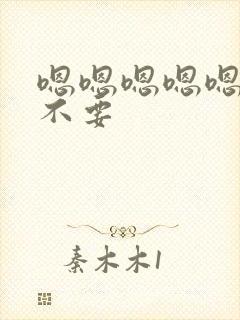 嗯嗯嗯嗯嗯
不要
秦木木1